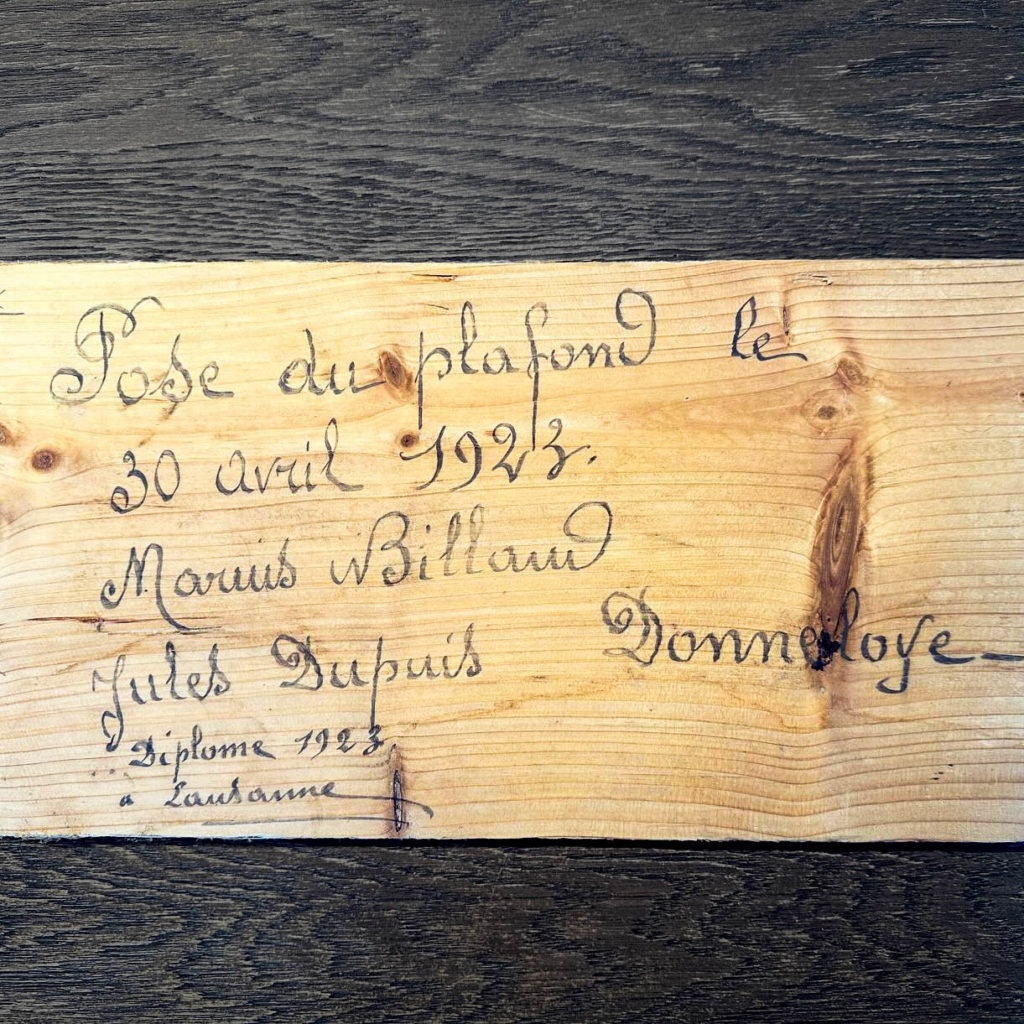 Pose du plafond le
30 avril 1923.
Marius Billaud
Jules Dupuis Donneloye
Diplome 1923
a Lausanne